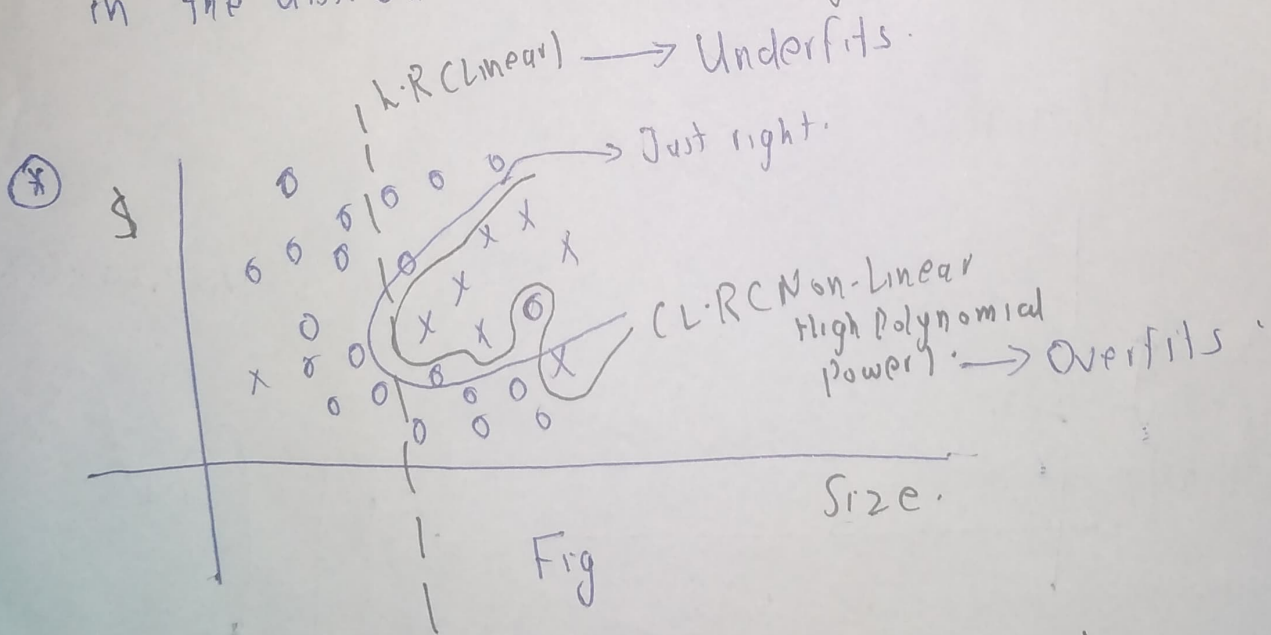 in the
L.R (Linear) → Underfits.
Just right.
$
(L.R (Non-Linear
High Polynomial
Power) → Overfits
Size.
Fig